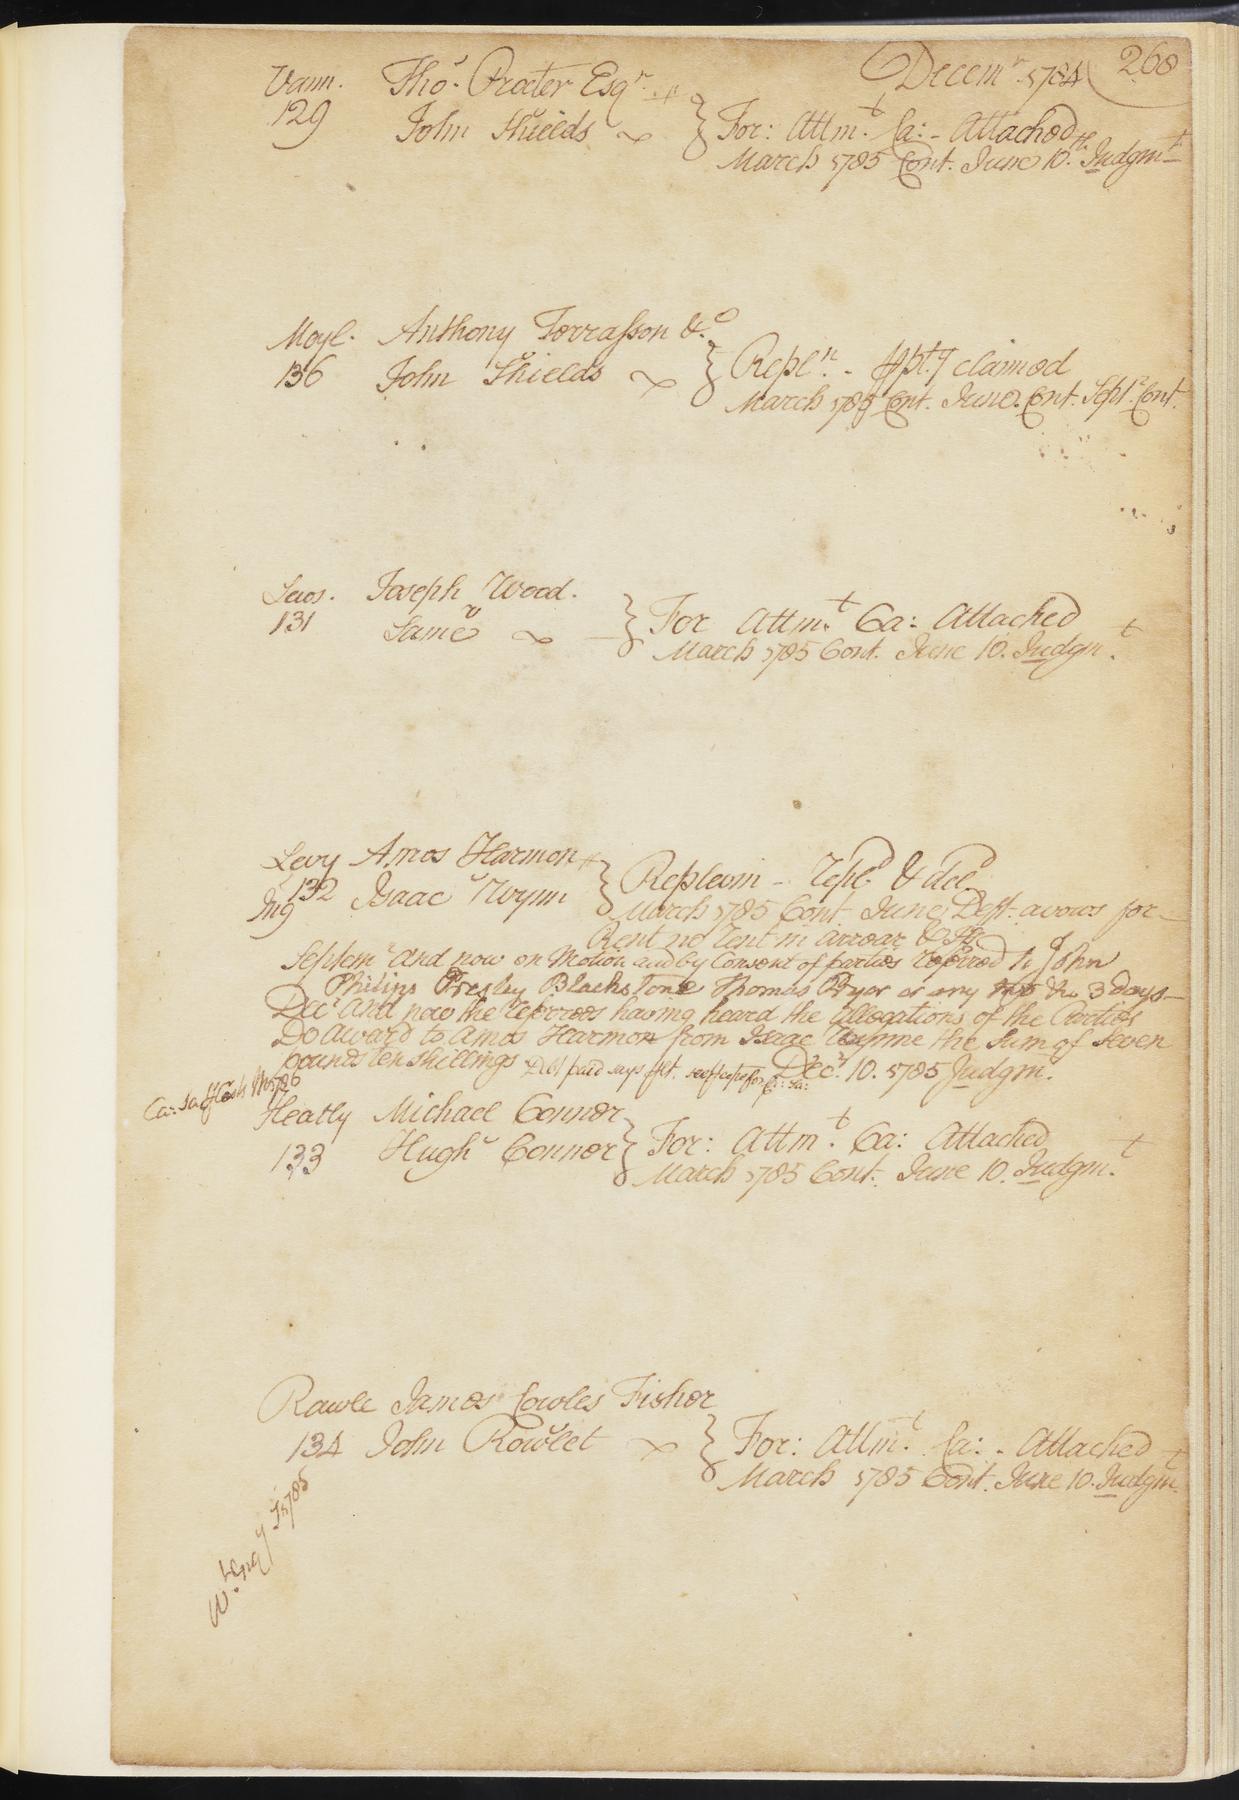 Decemr. 1784 268
Vann. Thos. Procter Esqr.
129 v John Shields } For: Attmt. Ca: - Attached
March 1785 Cont. June 10th. Judgmt
Moyl. Anthony Terrasson & Co.
136 v John Shields } Repln. - ppty claimed
March 1785 Cont. June Cont. Sept. Cont.
Joseph Wood.
131 v Same } For Attmt. Ca: Attached
March 1785 Cont. June 10. Judgmt.
Levy Amos Harmon
132 v Isaac Wynn } Replevin - Repld & deld
March 1785 Cont. June Deft. avows for
Rent no rent in arrear &
Septemr. and now on Motion and by Consent of parties referred to John
Philips Presley Blackstone Thomas Pryor or any two 3 days
Decr. And now the referrees having heard the allegations of the Parties
Do award to Amos Harmon from Isaac Wynne the Sum of Seven
pounds ten shillings Decr. 10. 1785 Judgmt.
Ca: Sa
Heatly Michael Connor
133 v Hugh Connor } For: Attmt. Ca: Attached
March 1785 Cont. June 10. Judgmt.
Rawle James Cowles Fisher
134 v John Rowlet } For: Attmt. Ca: - Attached
March 1785 Cont. June 10. Judgmt.
1785